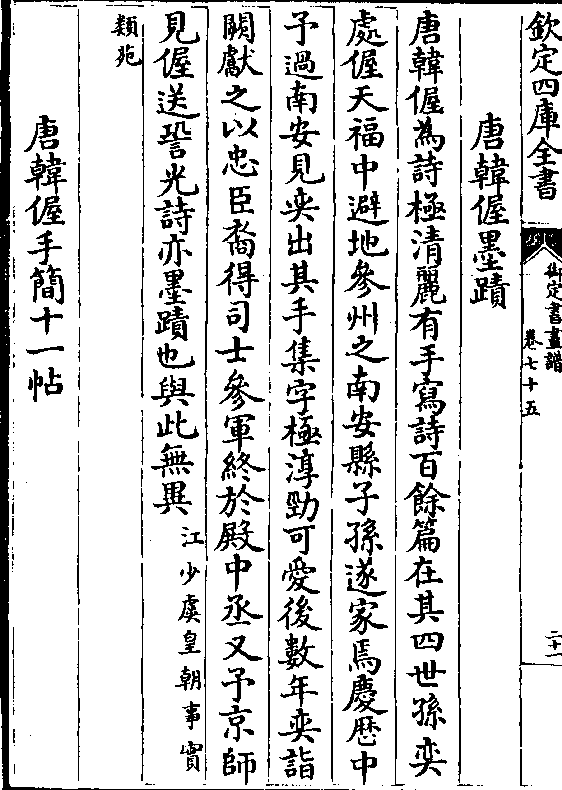 欽定四庫全書
御定書畫譜
卷七十五
二十一
唐韓偓墨蹟
唐韓偓為詩極清麗有手寫詩百餘篇在其四世孫奕
處偓天福中避地參州之南安縣子孫遂家焉慶厯中
予過南安見奕出其手集字極淳勁可愛後數年奕詣
闕獻之以忠臣裔得司士參軍終於殿中丞又予京師
見偓送䛒光詩亦墨蹟也與此無異江少虞皇朝事實
類苑
唐韓偓手簡十一帖